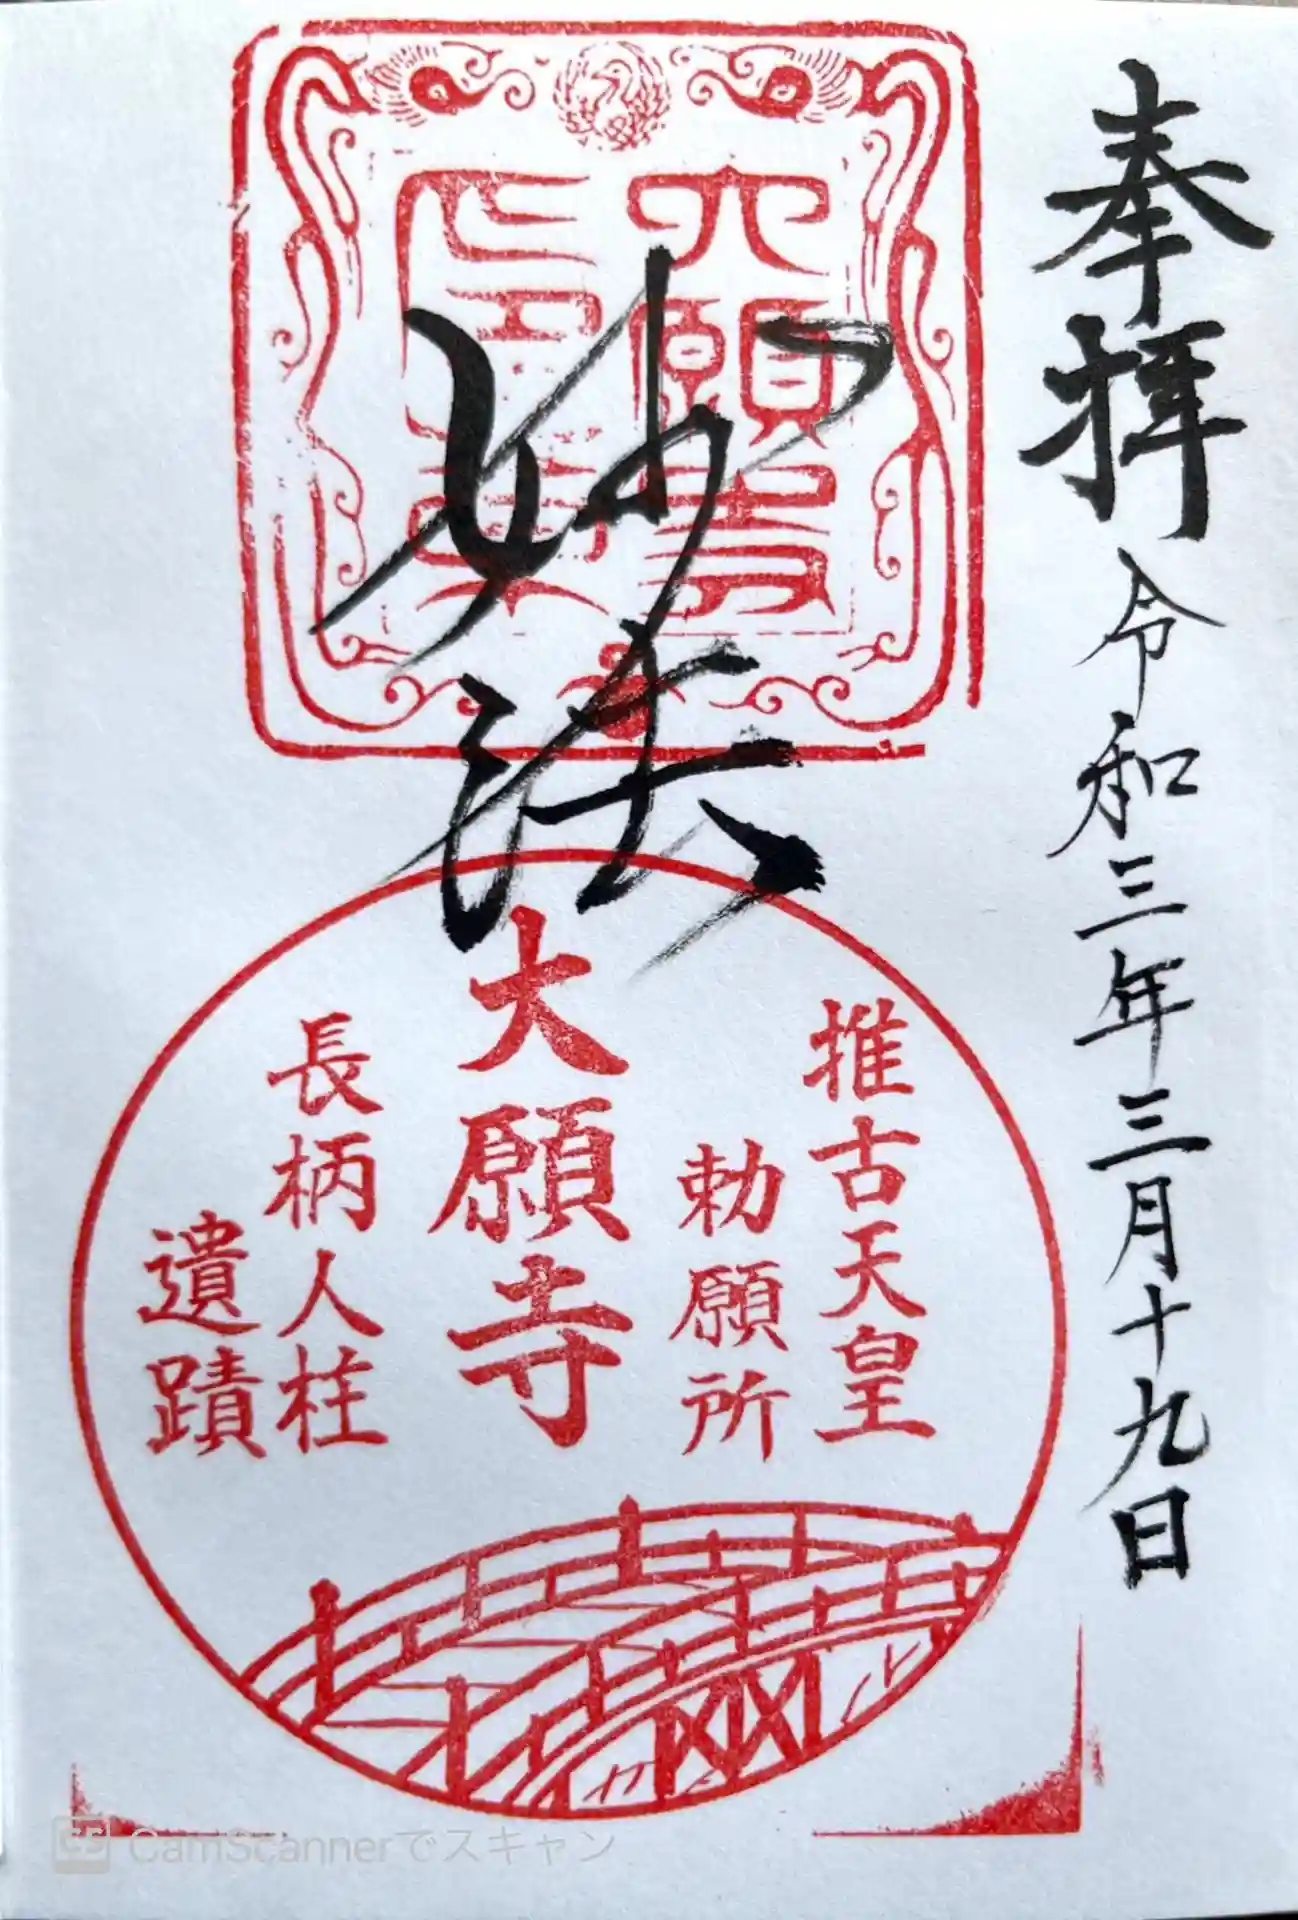 奉拝 令和三年三月十九日
妙法
大願寺
推古天皇
勅願所
大願寺
長柄人柱
遺蹟
CS CamScannerでスキャン